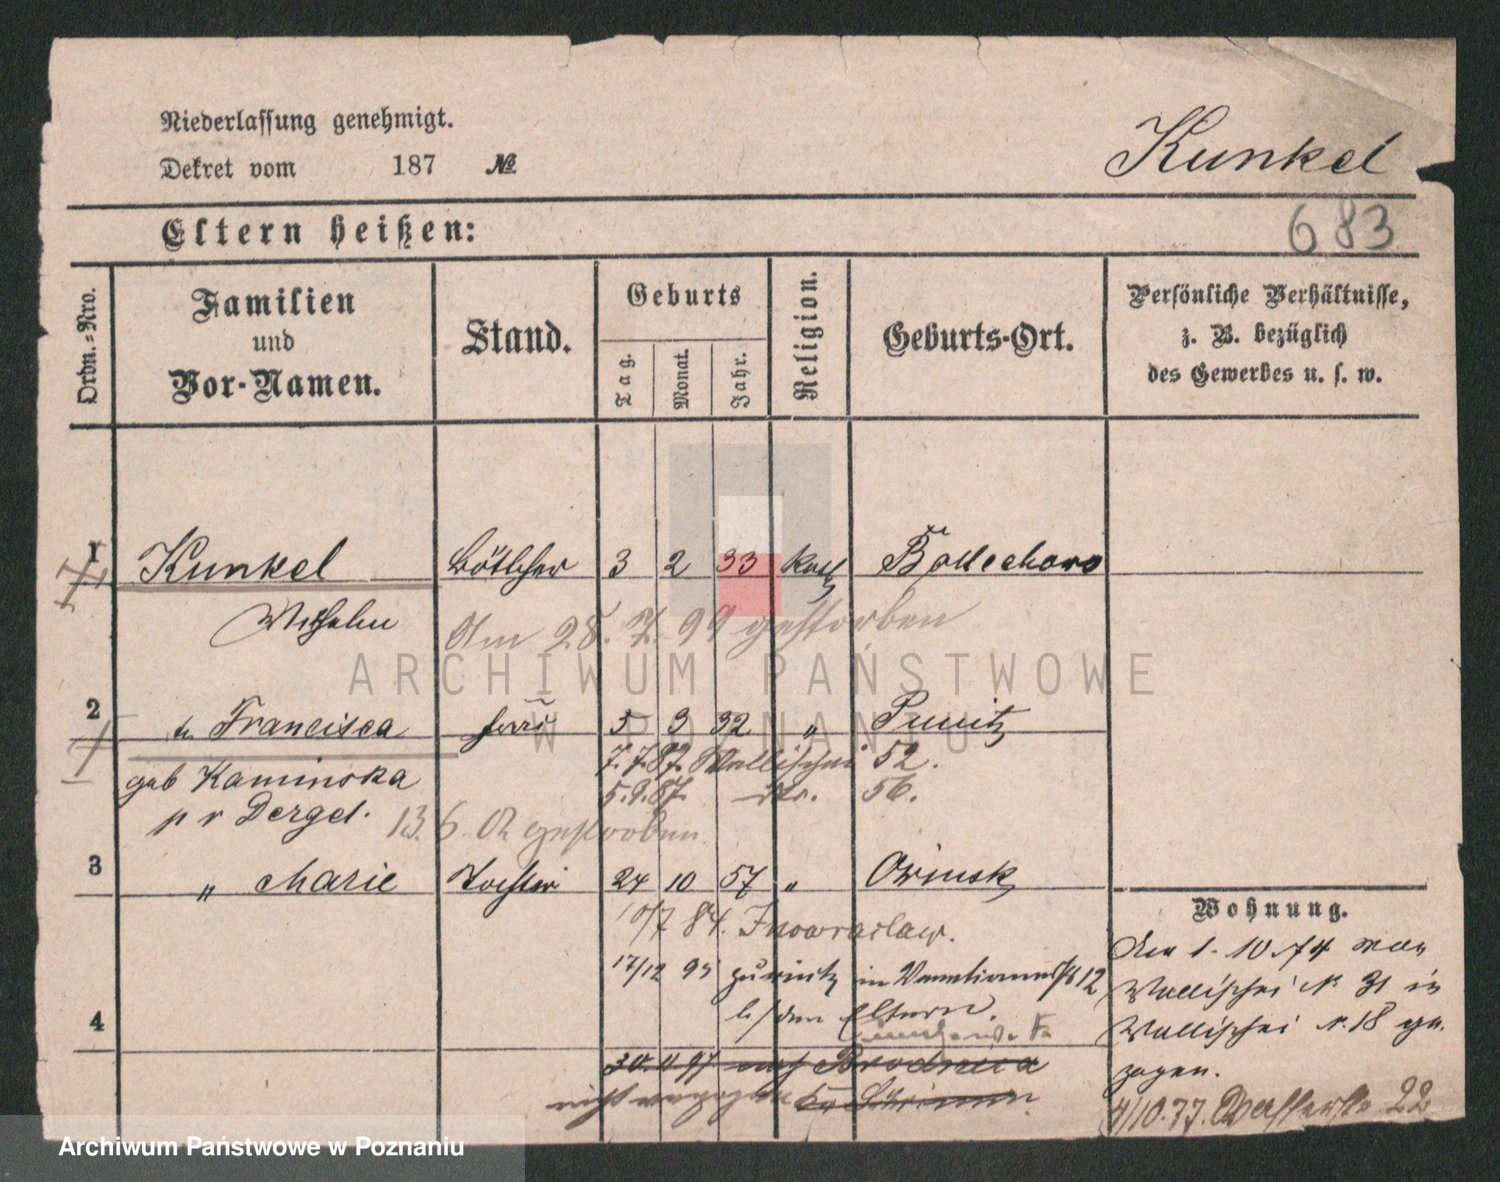 Niederlassung genehmigt.
Dekret vom 187 №
Kunkel
Eltern heißen:
683
Ordn.-Nro.
Familien
und
Vor-Namen.
Stand.
Geburts
Tag.
Monat.
Jahr.
Religion.
Geburts-Ort.
Persönliche Verhältnisse,
z. B. bezüglich
des Gewerbes u. s. w.
1 Kunkel Böttcher 3 2 33 kath
Wilhelm
Am 28. 7. 99 gestorben
ARCHIWUM PAŃSTWOWE
W POZNANIU
2 Francisca 5 3 32 „ Punitz
7.7.87. Wallischei 52.
geb Kaminska
5.9.87. do. 56.
p v Dergel.
13. 6. 02 gestorben.
3 „ Marie Tochter 24 10 57 „ Owinsk
Wohnung.
10/7 84. Inowraclaw.
17/12 95 zurück in Venetianerstr 12
b/den Eltern.
4
30. 11 97 nach
nicht
Am 1. 10. 74 von
Wallischei N. 31 in
Wallischei N. 18 ge-
zogen.
4/10.77. Wasserstr 22
Archiwum Państwowe w Poznaniu